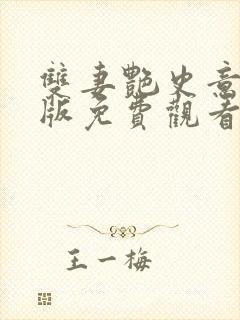 雙妻艷史意
版免費觀看
王一梅